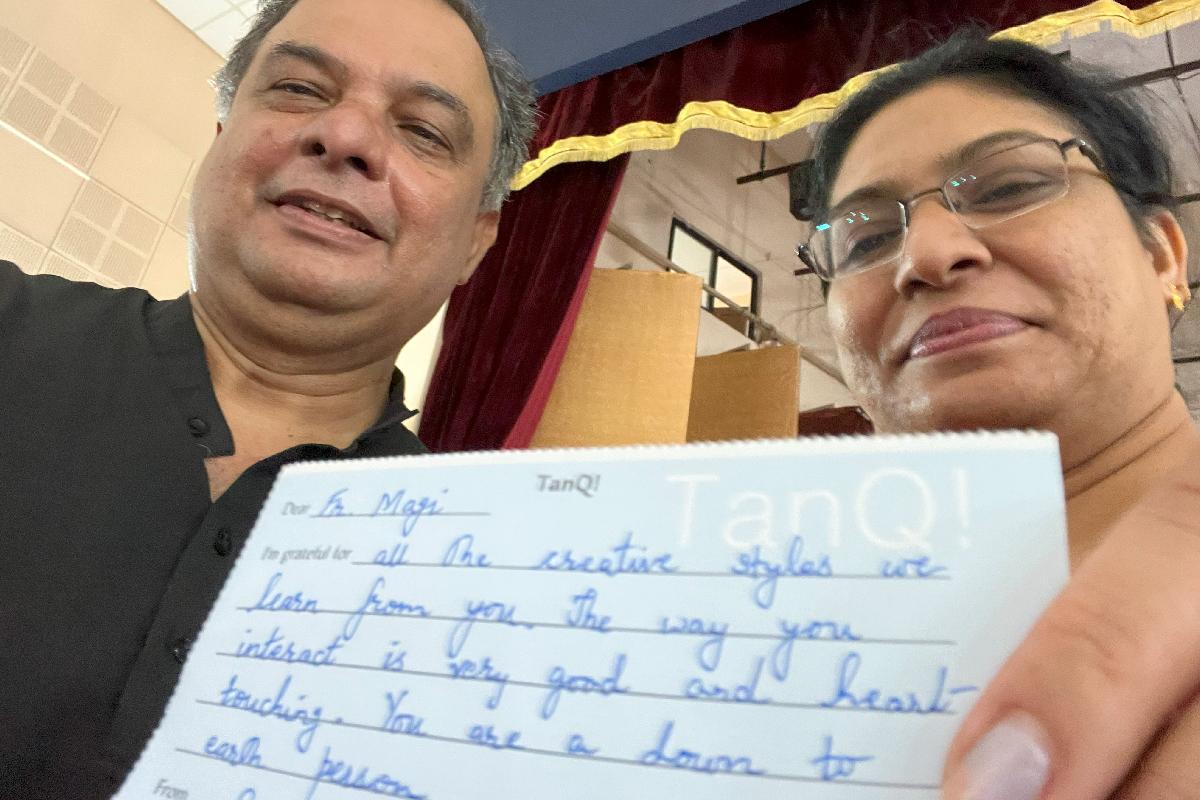 TanQ!
TanQ!
Dear Fr. Magi
I'm grateful for all the creative styles we
learn from you. The way you
interact is very good and heart-
touching. You are a down to
earth person
From